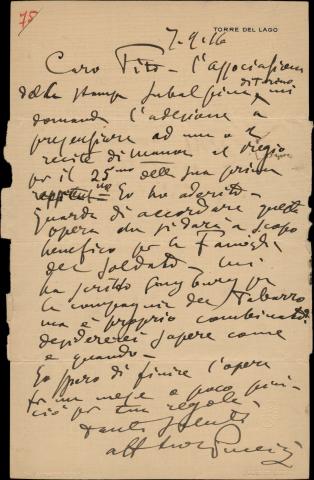 75
TORRE DEL LAGO
7.9.16
Caro Tito – l'Associazione
della stampa subalpina di Torino mi
domanda l'adesione a
presenziare ad una
recite di Manon al Regio
per il 25mo della sua prima
Io ho aderito –
Guarda di accordare questa
opera che si darà a scopo
benefico per le famiglie
dei soldati – mi
ha scritto per
la compagnia del Tabarro
ma è proprio combinato?
desidererei sapere come
e quando –
Io spero di finire l'opera
fra un mese e poco più
ciò per tua regola –
tanti saluti
Puccini